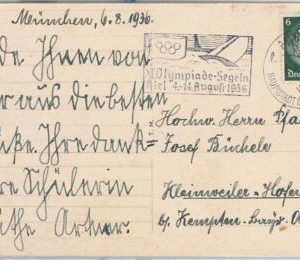 München, 6.8.1936.
de Ihnen von
r aus die besten
ße. Ihre dank=
re Schülerin
the Artner.
XI. Olympiade-Segeln
Kiel 4.-14. August 1936
6
Hochw. Herrn Pfa
Josef Büchele
Kleinweiler-Hofen
b/ Kempten-Bayr.